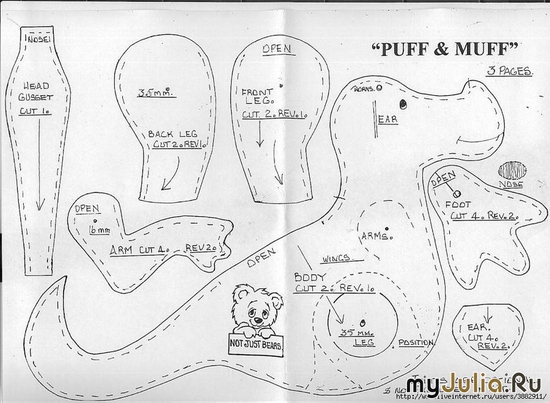 "PUFF & MUFF"
3 PAGES.
NOSE
HEAD
GUSSET
CUT 1.
3.5 mm.
BACK LEG
CUT 2. REV. 1.
OPEN
FRONT
LEG.
CUT 2. REV. 1.
HORNS.
EAR
OPEN
FOOT
CUT 4. REV. 2.
NOSE
OPEN
6 mm
ARM CUT 4. REV 2.
ARMS.
WINGS.
OPEN
BODY
CUT 2. REV. 1.
35 mm.
LEG
POSITION.
NOT JUST BEARS.
EAR.
CUT 4.
REV. 2.
myJulia.Ru
liveinternet.ru/users/3882911/